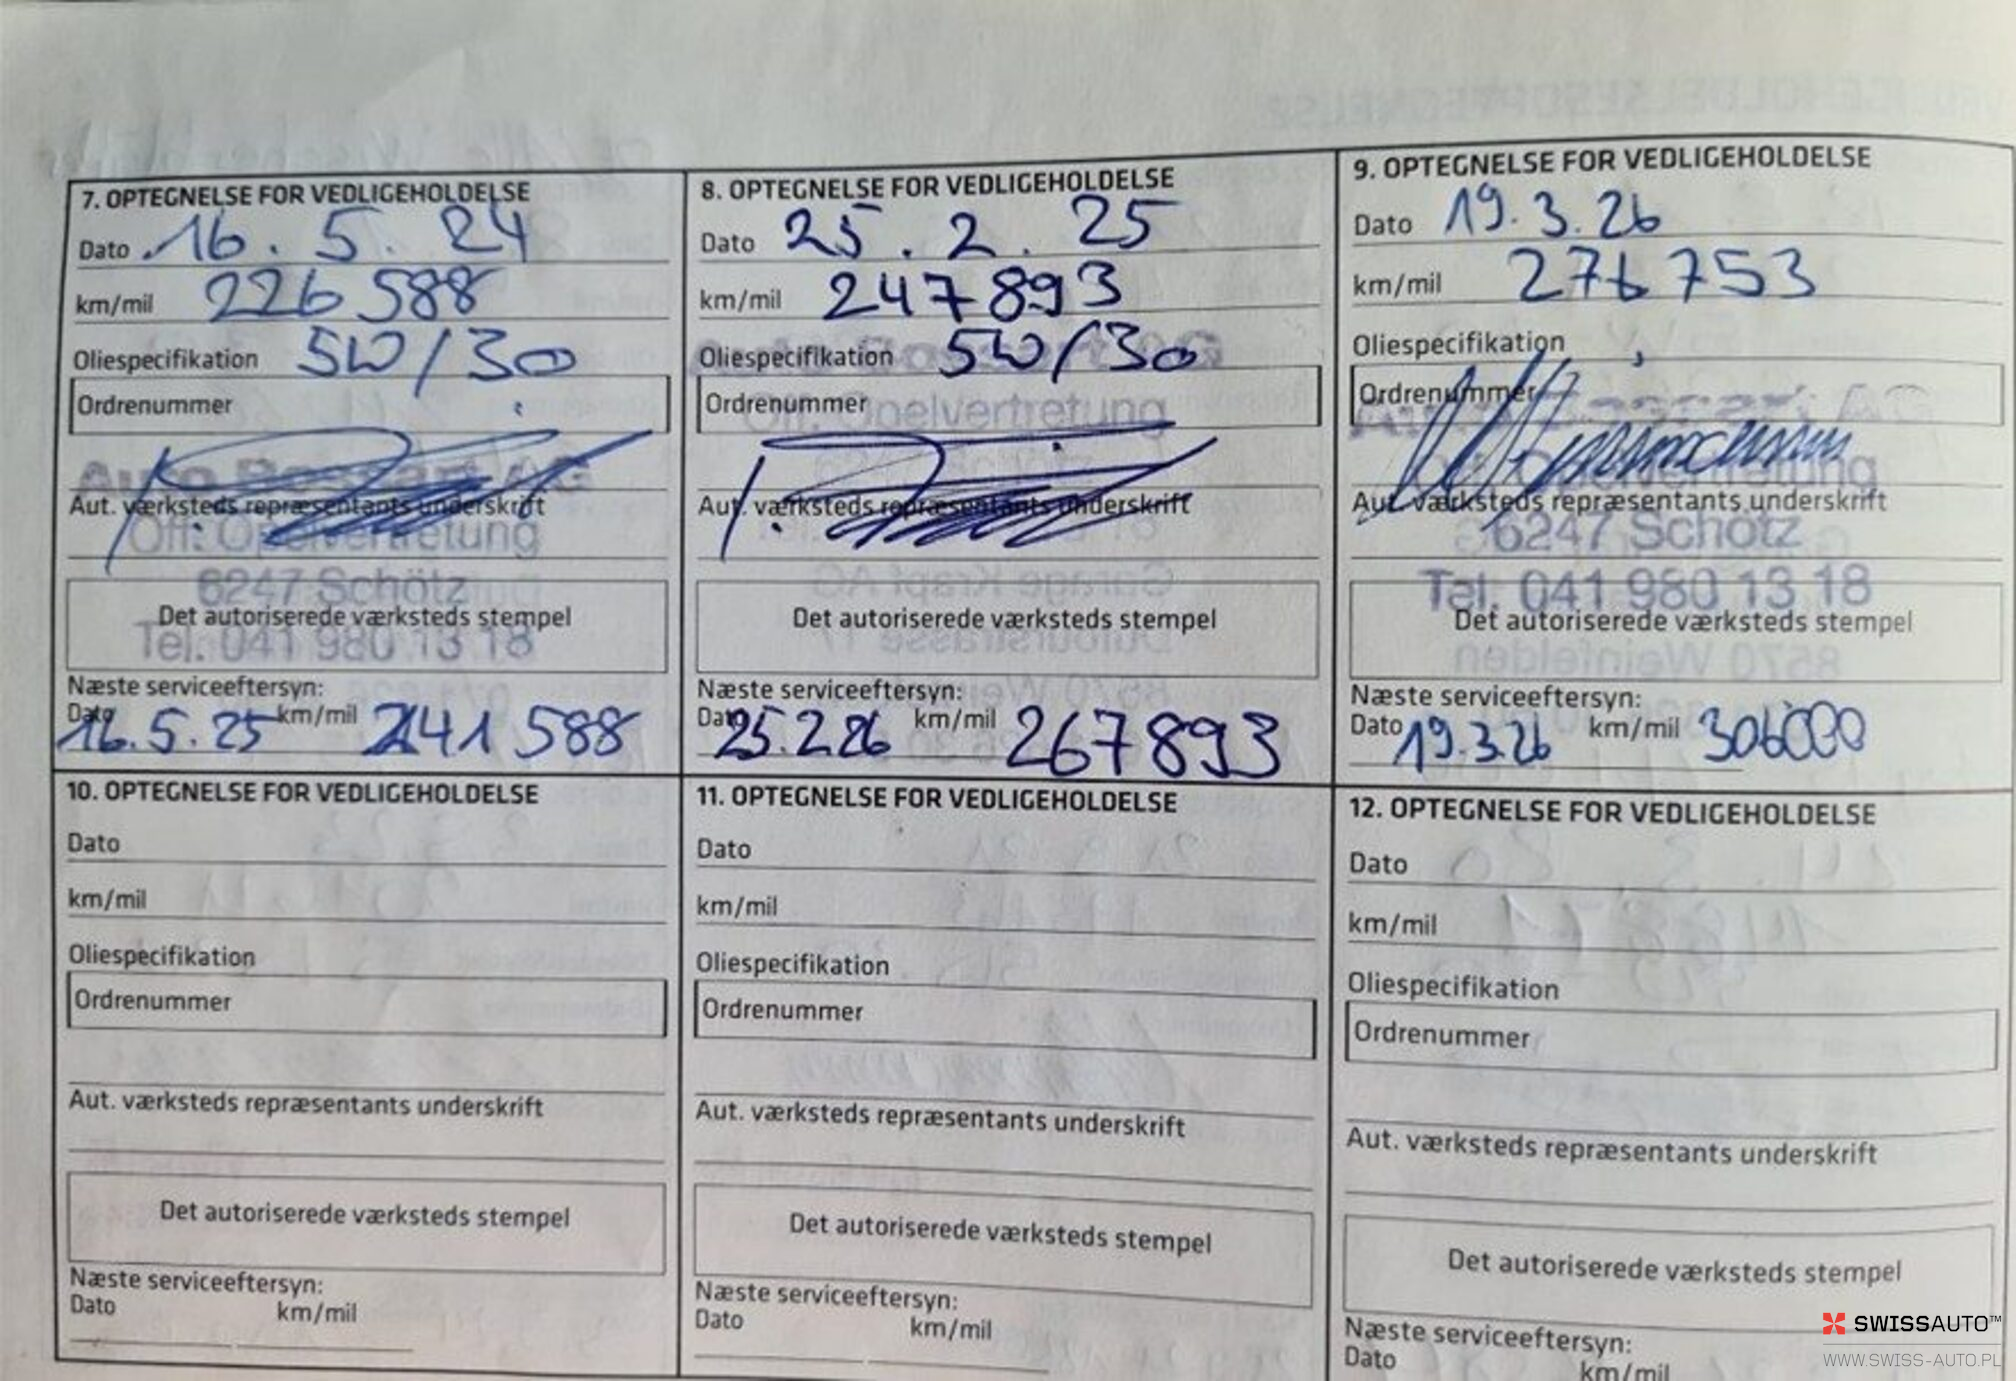 7. OPTEGNELSE FOR VEDLIGEHOLDELSE
Dato 16. 5. 24
km/mil 226 588
Oliespecifikation 5W/30
Ordrenummer
Auto Bossart AG
Aut. værksteds repræsentants underskrift
Off. Opelvertretung
6247 Schötz
Det autoriserede værksteds stempel
Tel. 041 980 13 18
Næste serviceeftersyn:
Dato 16.5.25 km/mil 241 588
8. OPTEGNELSE FOR VEDLIGEHOLDELSE
Dato 25.2.25
km/mil 247893
Oliespecifikation 5W/30
Ordrenummer
Off. Opelvertretung
Aut. værksteds repræsentants underskrift
Det autoriserede værksteds stempel
Næste serviceeftersyn:
Dato 25.2.26 km/mil 267893
9. OPTEGNELSE FOR VEDLIGEHOLDELSE
Dato 19.3.26
km/mil 276753
Oliespecifikation
Ordrenummer
Off. Opelvertretung
Aut. værksteds repræsentants underskrift
6247 Schötz
Tel. 041 980 13 18
Det autoriserede værksteds stempel
Næste serviceeftersyn:
Dato 19.3.26 km/mil 306000
10. OPTEGNELSE FOR VEDLIGEHOLDELSE
Dato
km/mil
Oliespecifikation
Ordrenummer
Aut. værksteds repræsentants underskrift
Det autoriserede værksteds stempel
Næste serviceeftersyn:
Dato km/mil
11. OPTEGNELSE FOR VEDLIGEHOLDELSE
Dato
km/mil
Oliespecifikation
Ordrenummer
Aut. værksteds repræsentants underskrift
Det autoriserede værksteds stempel
Næste serviceeftersyn:
Dato km/mil
12. OPTEGNELSE FOR VEDLIGEHOLDELSE
Dato
km/mil
Oliespecifikation
Ordrenummer
Aut. værksteds repræsentants underskrift
Det autoriserede værksteds stempel
Næste serviceeftersyn:
Dato km/mil
SWISSAUTO™
WWW.SWISS-AUTO.PL